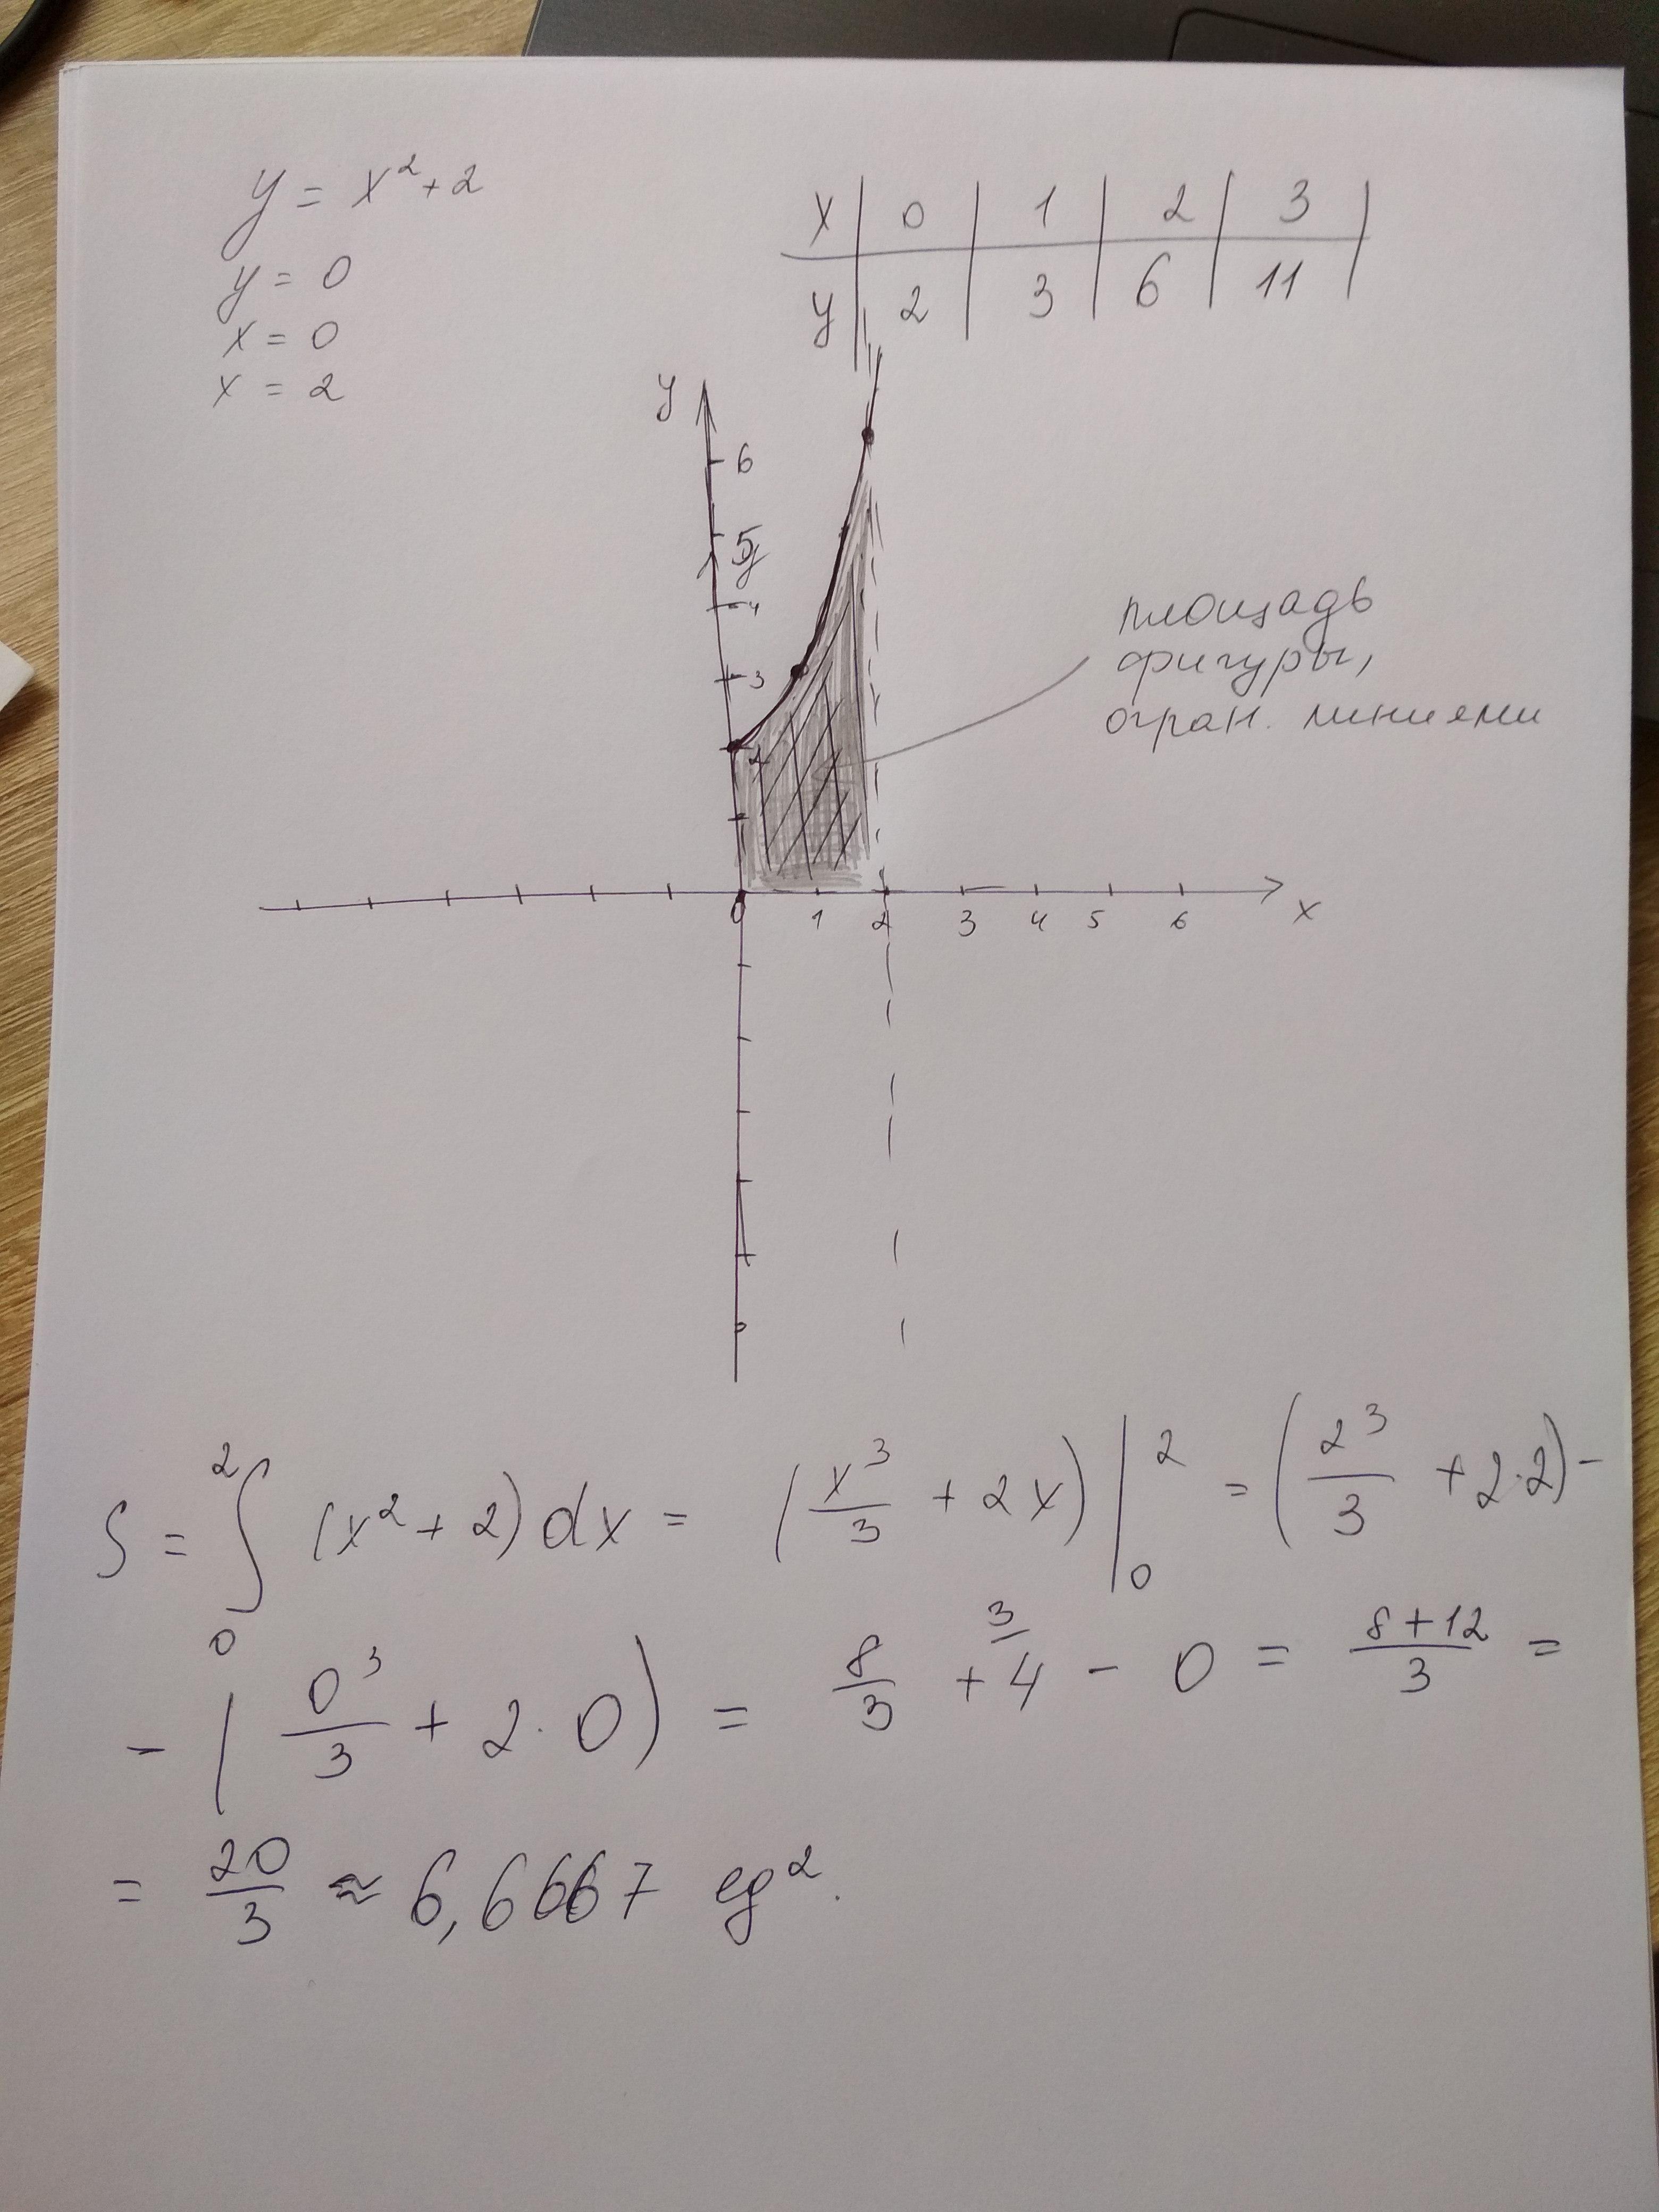 y = x² + 2
y = 0
x = 0
x = 2
x | 0 | 1 | 2 | 3 |
y | 2 | 3 | 6 | 11 |
y
6
5
y
4
3
2
площадь
фигуры,
огран. линиями
0 1 2 3 4 5 6 x
S = ∫₀² (x² + 2) dx = (x³/3 + 2x) |₀² = (2³/3 + 2·2) -
- (0³/3 + 2·0) = 8/3 + 4 ³/ - 0 = (8+12)/3 =
= 20/3 ≈ 6,6667 ед².